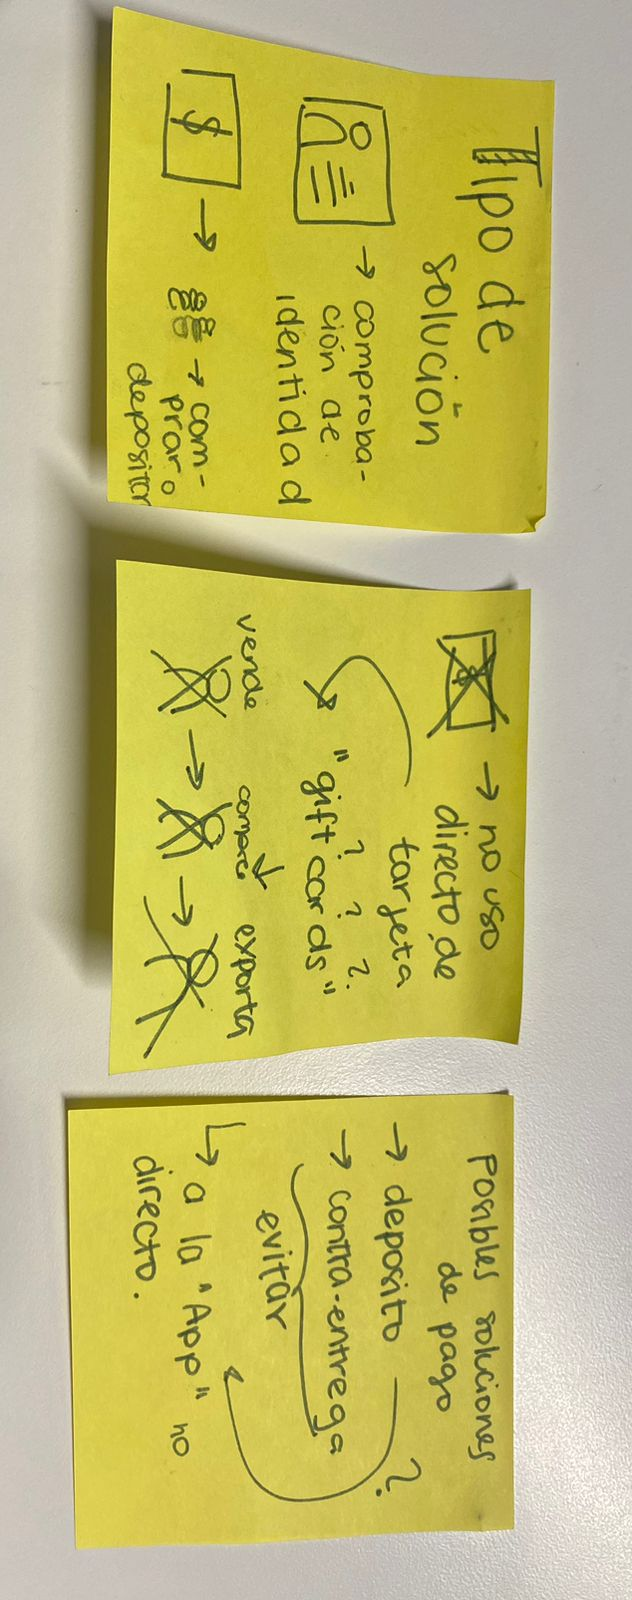 Tipo de
solución
→ comproba-
ción de
identidad
$ → → com-
prar o
depositar
$ → no uso
directo de
tarjeta
? ? ?
"gift cards"
vende compra exporta
→ →
Posibles soluciones
de pago
→ deposito ?
→ contra-entrega
evitar
↳ a la "App" no
directo.